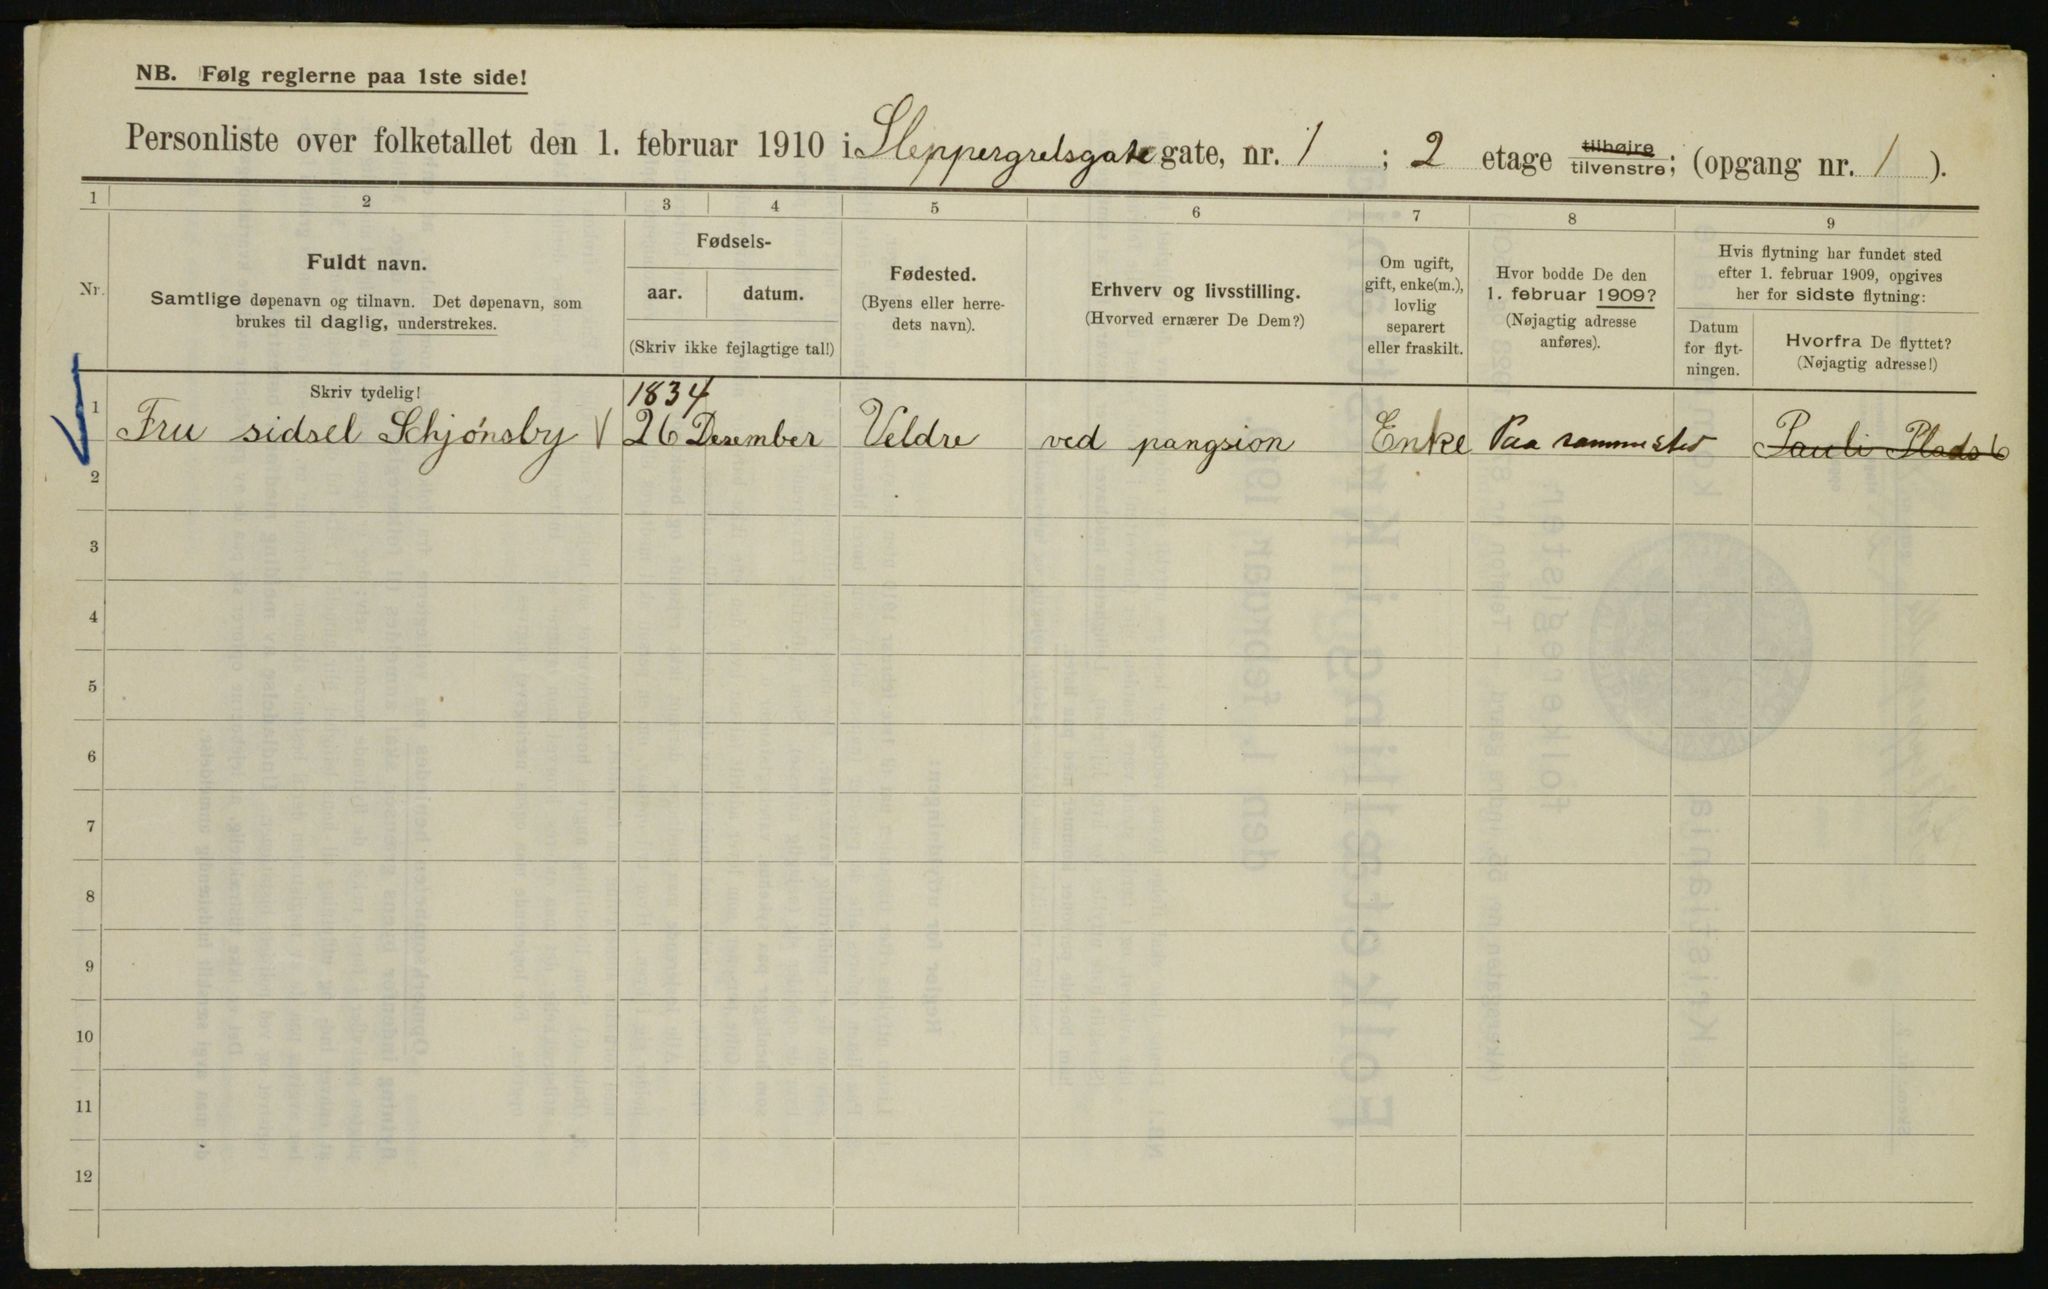 NB. Følg reglerne paa 1ste side!
Personliste over folketallet den 1. februar 1910 i Sleppergrelsgate gate, nr. 1 ; 2 etage tilhøire tilvenstre; (opgang nr. 1 ).
1 2 3 4 5 6 7 8 9
Nr.
Fuldt navn.
Samtlige døpenavn og tilnavn. Det døpenavn, som
brukes til daglig, understrekes.
Fødsels-
aar. datum.
(Skriv ikke fejlagtige tal!)
Fødested.
(Byens eller herre-
dets navn).
Erhverv og livsstilling.
(Hvorved ernærer De Dem?)
Om ugift,
gift, enke(m.),
lovlig
separert
eller fraskilt.
Hvor bodde De den
1. februar 1909?
(Nøjagtig adresse
anføres).
Hvis flytning har fundet sted
efter 1. februar 1909, opgives
her for sidste flytning:
Datum
for flyt-
ningen.
Hvorfra De flyttet?
(Nøjagtig adresse!)
Skriv tydelig!
1834
1 Fru sidsel Schjónsby 26 Desember Veldre ved pangsion Enke Paa sammested Pauli Plads 6
2
3
4
5
6
7
8
9
10
11
12